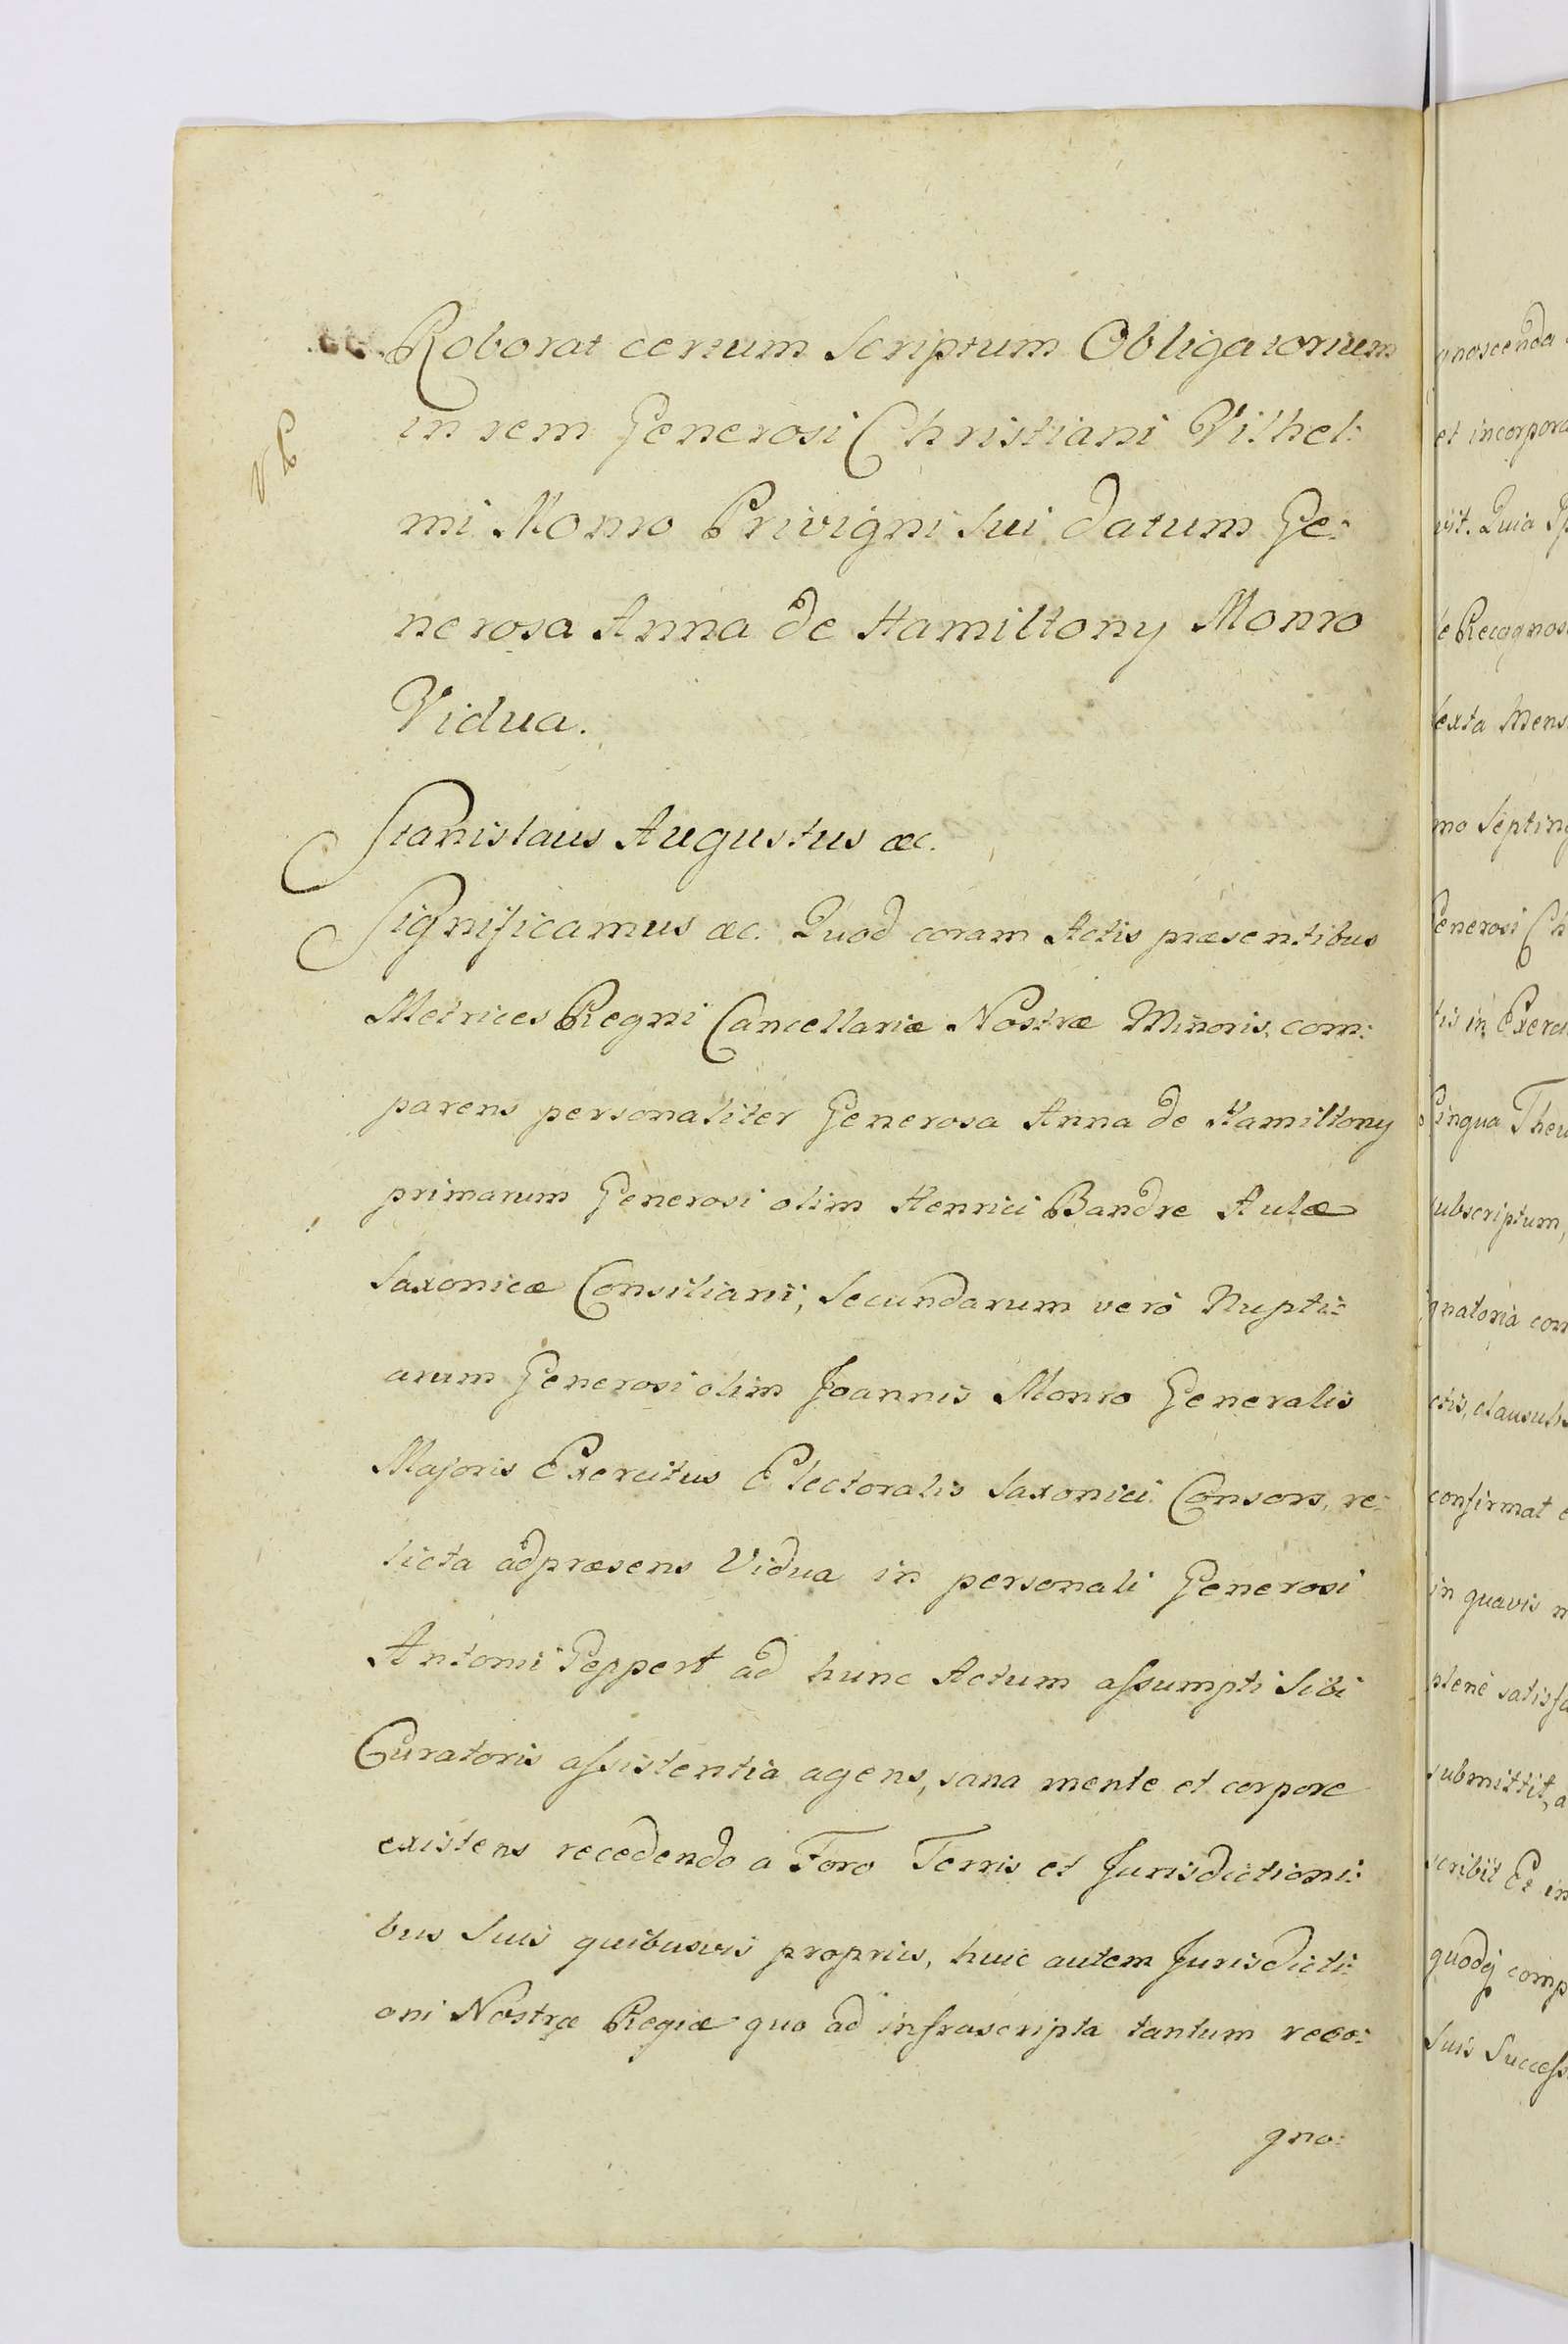 Roborat certum Scriptum Obligatorium
in rem Generosi Christiani Vilhel:
mi Monro Privigni sui datum Ge:
nerosa Anna de Hamiltony Monro
Vidua.
Stanislaus Augustus æc.
Significamus æc. Quod coram Actis præsentibus
Metrices Regni Cancellariæ Nostræ Minoris, com:
parens personaliter Generosa Anna de Hamiltony
primarum Generosi olim Henrici Bandre Aulæ
Saxonicæ Consiliarii, Secundarum verò Nupti:
arum Generosi olim Joannis Monro Generalis
Majoris Exercitus Electoralis Saxonici Consors, re:
licta adpræsens Vidua in personali Generosi
Antonii Peppert ad hunc Actum assumpti Sibi
Curatoris assistentia agens, sana mente et corpore
existens recedendo a Foro Terris et Jurisdictioni:
bus Suis quibusvis propriis, huic autem Jurisdicti:
oni Nostræ Regiæ quo ad infrascripta tantum reco:
gno:
gnoscenda
et incorpora
vit. Quia
Recognos
sexta Mens
mo Septing
Generosi Ch
tis in Exerci
Lingua Theu
subscriptum,
gnatoria
ctis, clausulis
confirmat
in quavis
plenè satisfa
submittit,
scribit Et in
quodq comp
Suis Success